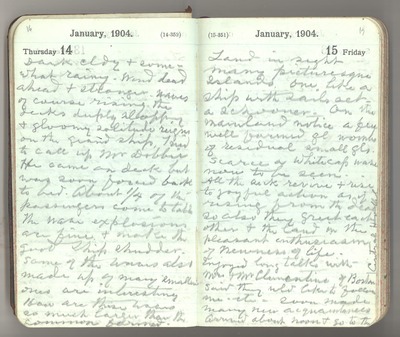 January, 1904.
(14-352)
Thursday 14
Dark cldy & some-
what rainy. Wind dead
ahead & stronger. waves
of course rising. the
decks deeply sloppy
& gloomy solitude reigns
on the grand ship, tried
to call up Mr
He came on deck but
was soon forced back
to bed. About 1/2 of the
passengers come to table
the wave explosions
are fine & make the
good ship shudder.
Some of the waves also
made up of many smaller
ones are interesting
How are these waves
so much larger than the
common
(15-351)
January, 1904.
15 Friday
Land in sight
many picturesque
Islands One like a
ship with sails set
a Schooner. On the
mainland notice a few
well formed
of residual small gls
Scarce a whitecap wave
now to be seen.
All the sick revive & rise
to joyful action as if
rising from the dead
so also they greet each
other & the land in the
pleasant enthusiasm
of Newness of Life.
Enjoyed long talks with
Mr & Mrs Clementine, &
said they
me etc. soon made
many new acquaintances
Arrived about noon & go to the